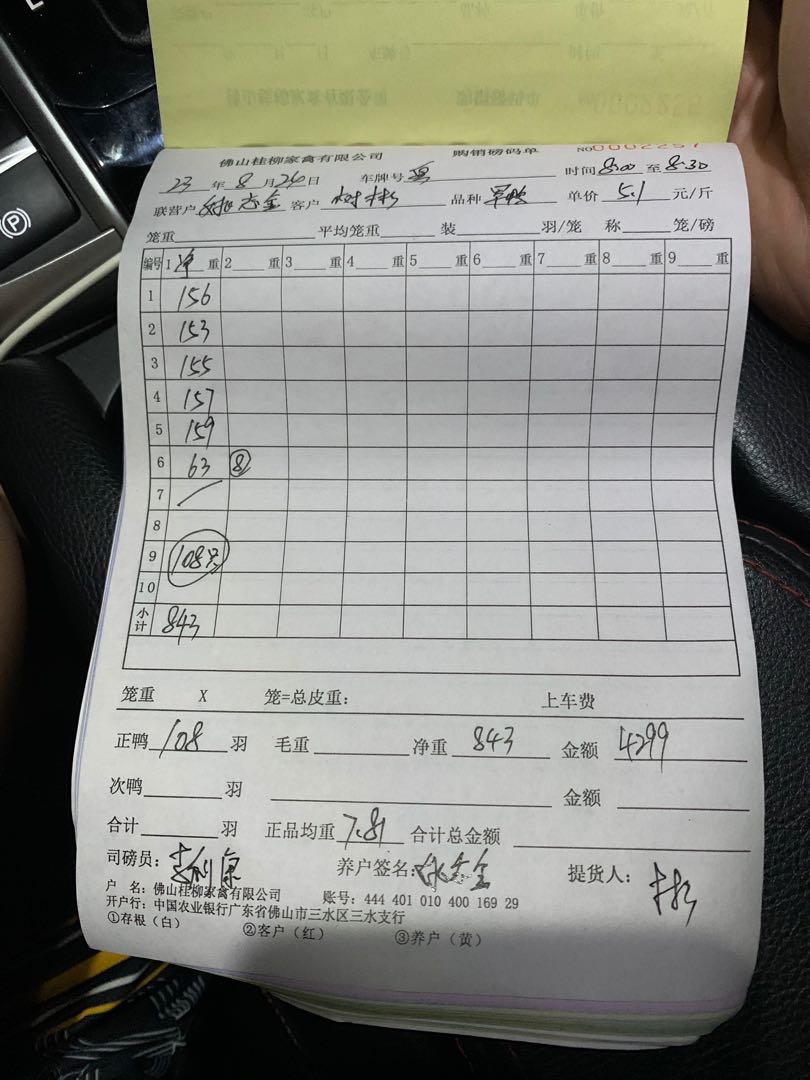 佛山桂柳家禽有限公司 购销磅码单 NO 0002257
23 年 8 月 24 日 车牌号 粤 时间 8:00 至 8:30
联营户 客户 品种 单价 5.1 元/斤
笼重 平均笼重 装 羽/笼 称 笼/磅
编号 1 净 重 2 重 3 重 4 重 5 重 6 重 7 重 8 重 9 重
1 156
2 153
3 155
4 157
5 159
6 63 ⑧
7
8
9 108只
10
小计 843
笼重 X 笼=总皮重: 上车费
正鸭 108 羽 毛重 净重 843 金额 4299
次鸭 羽 金额
合计 羽 正品均重 7.81 合计总金额
司磅员: 养户签名: 提货人:
户 名: 佛山桂柳家禽有限公司 账号: 444 401 010 400 169 29
开户行: 中国农业银行广东省佛山市三水区三水支行
①存根(白) ②客户(红) ③养户(黄)